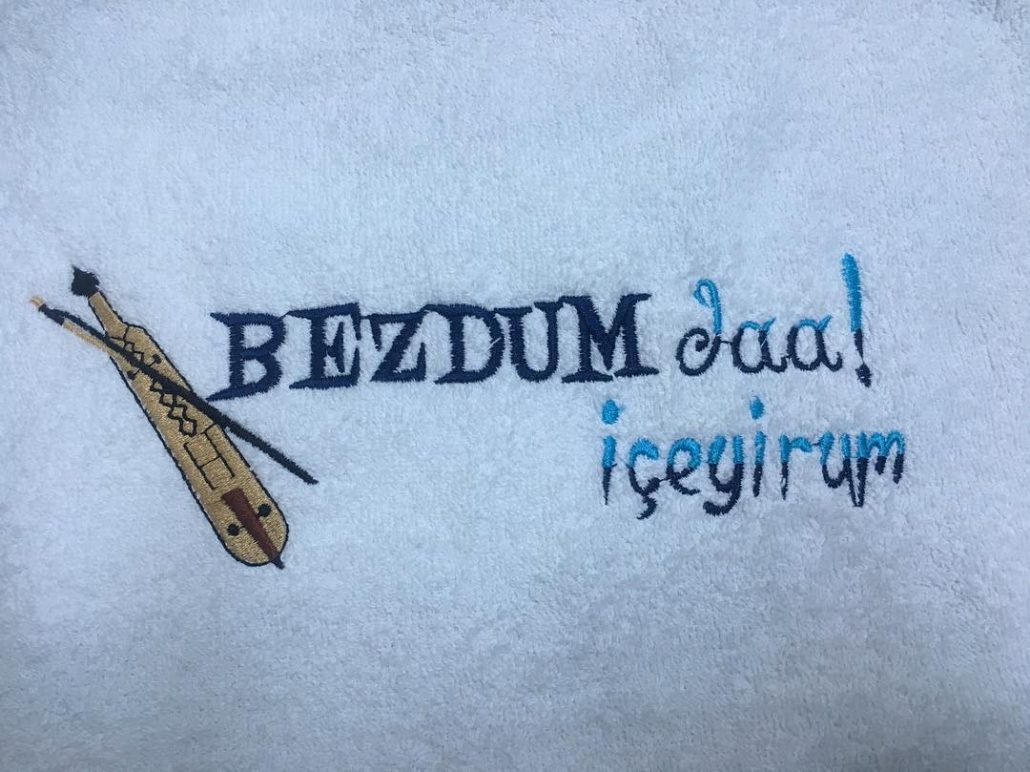 BEZDUM daa!
içeyirum